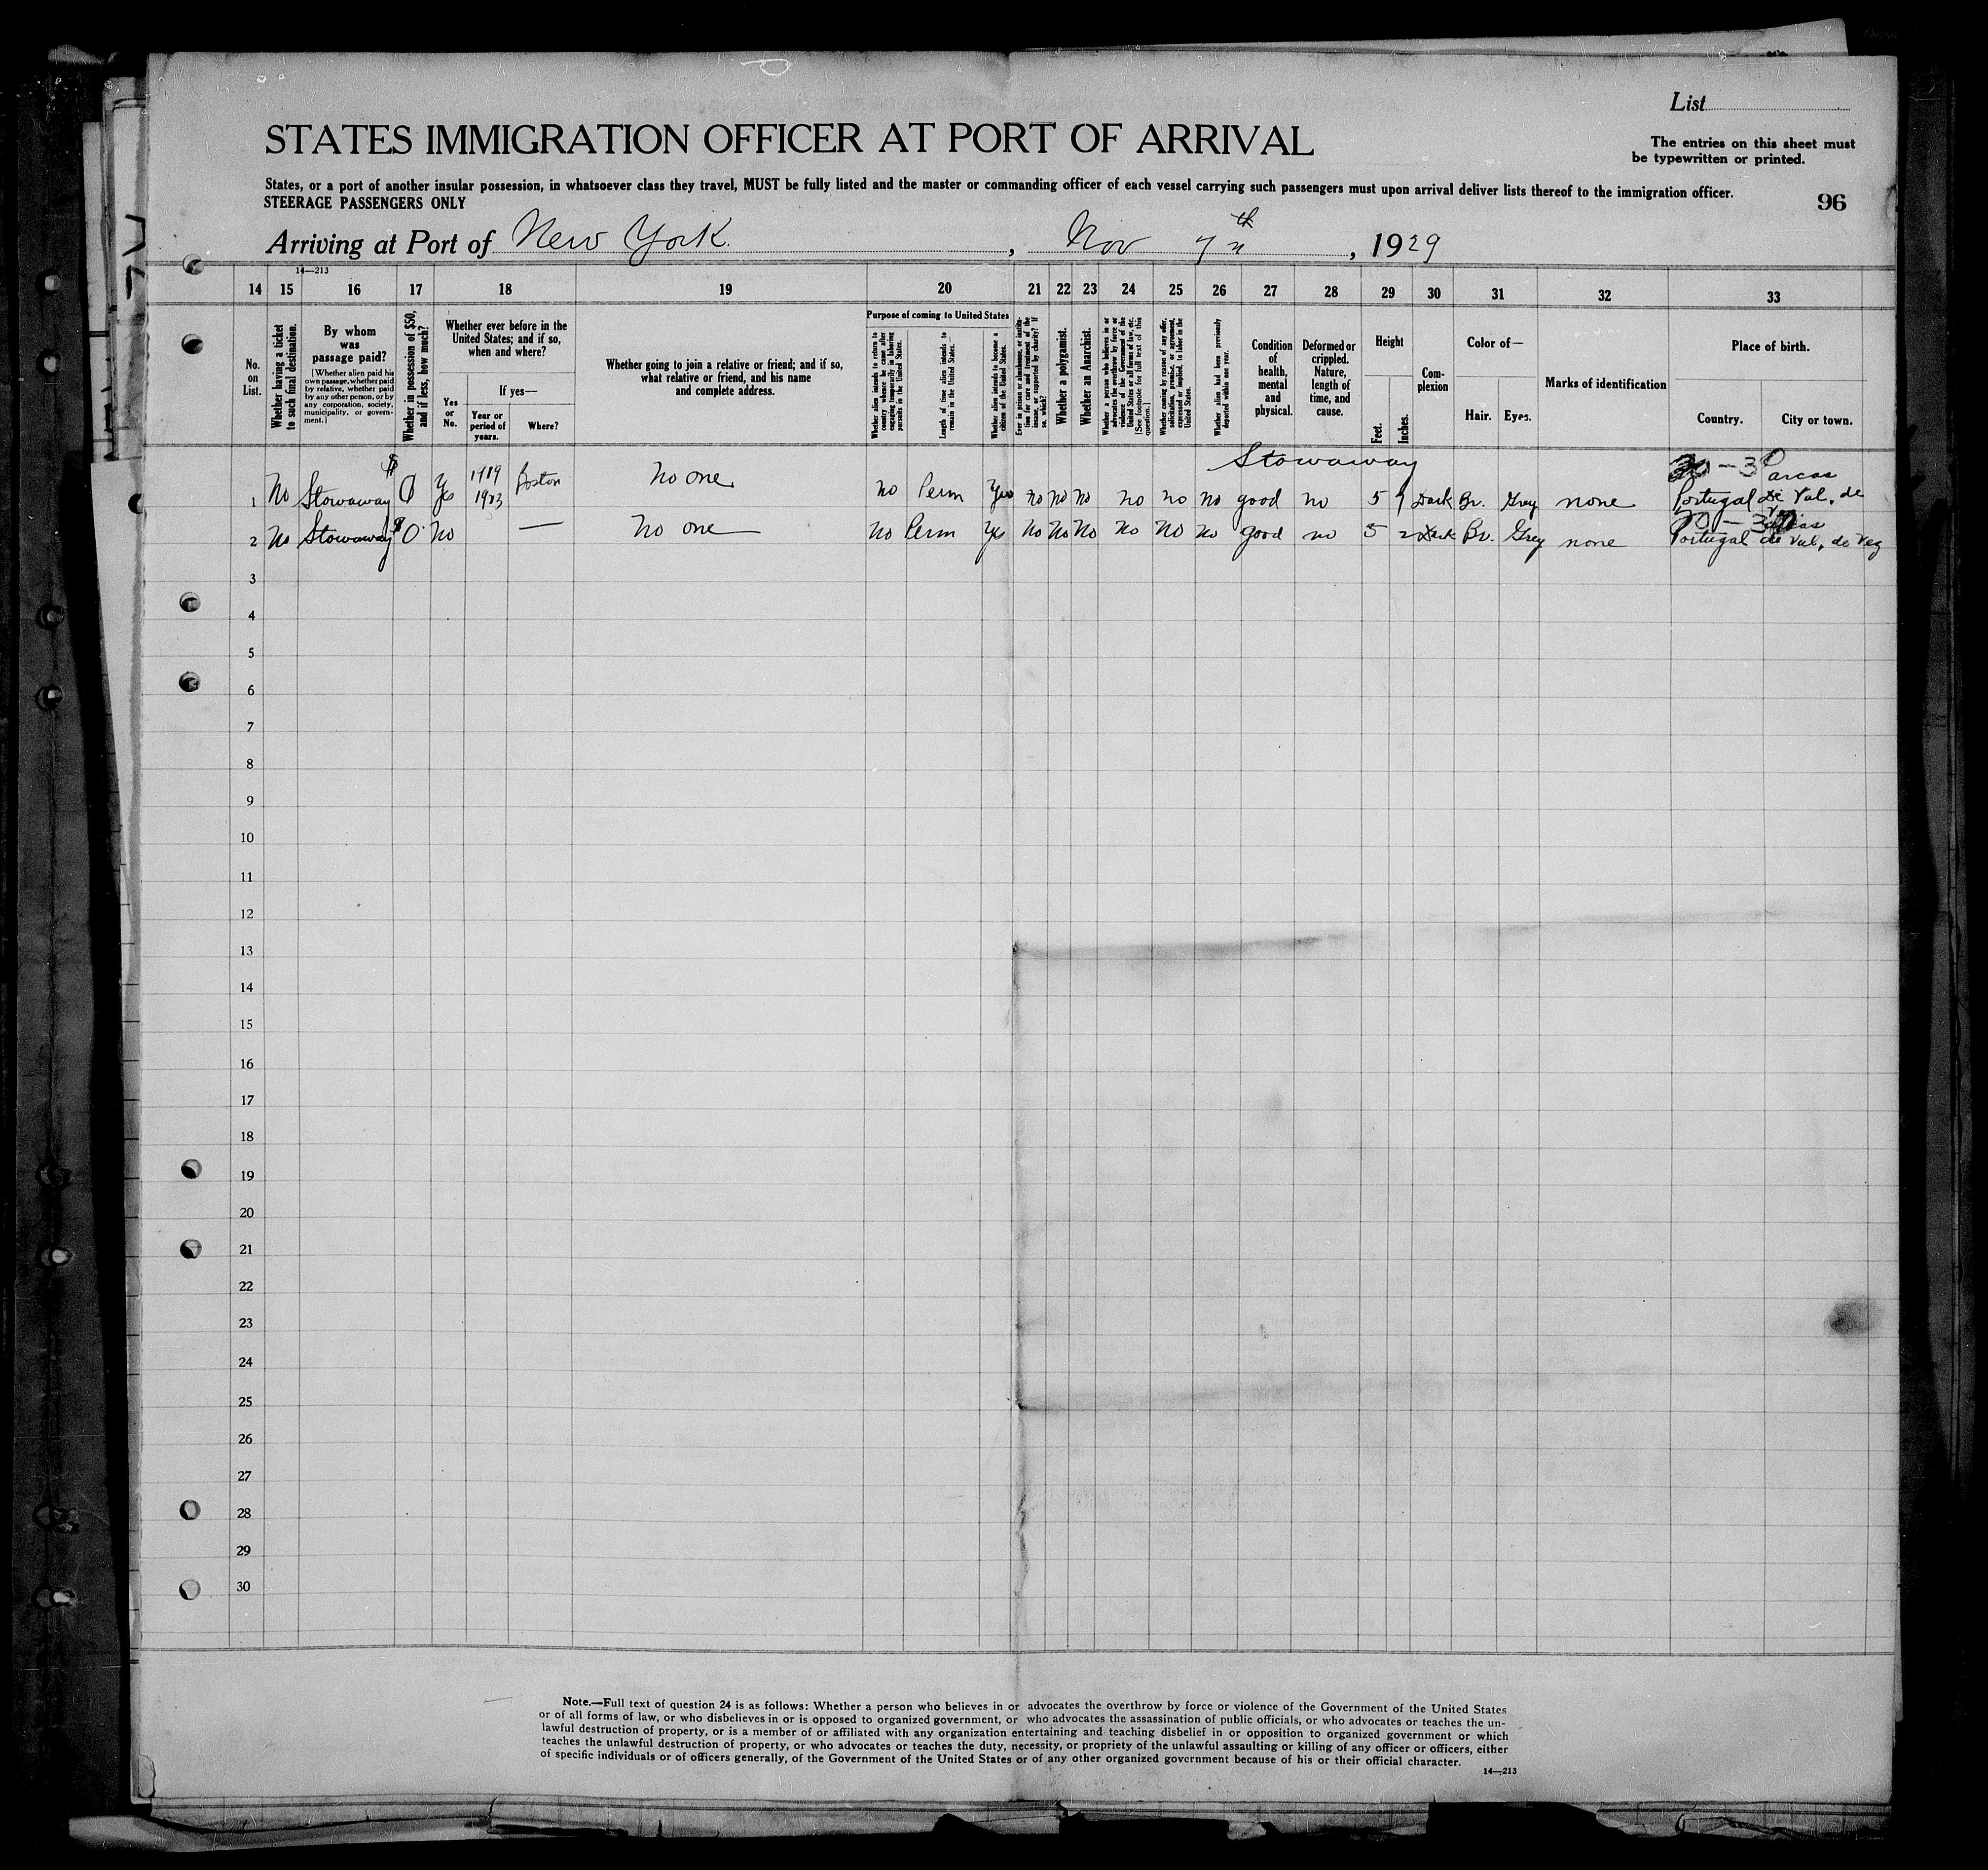 List
STATES IMMIGRATION OFFICER AT PORT OF ARRIVAL
The entries on this sheet must
be typewritten or printed.
States, or a port of another insular possession, in whatsoever class they travel, MUST be fully listed and the master or commanding officer of each vessel carrying such passengers must upon arrival deliver lists thereof to the immigration officer.
STEERAGE PASSENGERS ONLY
96
Arriving at Port of New York, Nov 7th, 1929
14—213
14 15 16 17 18 19 20 21 22 23 24 25 26 27 28 29 30 31 32 33
No. on List.
Whether having a ticket to such final destination.
By whom was passage paid?
[Whether alien paid his own passage, whether paid by relative, whether paid by any other person, or by any corporation, society, municipality, or government.]
Whether in possession of $50, and if less, how much?
Whether ever before in the United States; and if so, when and where?
Yes or No.
If yes—
Year or period of years.
Where?
Whether going to join a relative or friend; and if so, what relative or friend, and his name and complete address.
Purpose of coming to United States
Whether alien intends to return to country whence he came after engaging temporarily in laboring pursuits in the United States.
Length of time alien intends to remain in the United States.
Whether alien intends to become a citizen of the United States.
Ever in prison or almshouse, or institution for care and treatment of the insane, or supported by charity? If so, which?
Whether a polygamist.
Whether an Anarchist.
Whether a person who believes in or advocates the overthrow by force or violence of the Government of the United States or all forms of law, etc. [See footnote for full text of this question.]
Whether coming by reason of any offer, solicitation, promise, or agreement, expressed or implied, to labor in the United States.
Whether alien had been previously deported within one year.
Condition of health, mental and physical.
Deformed or crippled. Nature, length of time, and cause.
Height
Feet.
Inches.
Complexion
Color of—
Hair.
Eyes.
Marks of identification
Place of birth.
Country.
City or town.
Stowaway
1 No Stowaway $0 Yes 1919 1923 Boston No one No Perm Yes No No No no no no good no 5 Dark Br. Grey none Portugal de Val. de
2 No Stowaway $0 No — No one No Perm Yes No No No No No No good no 5 2 Dark Br. Grey none Portugal de Val. de
3
4
5
6
7
8
9
10
11
12
13
14
15
16
17
18
19
20
21
22
23
24
25
26
27
28
29
30
Note.—Full text of question 24 is as follows: Whether a person who believes in or advocates the overthrow by force or violence of the Government of the United States
or of all forms of law, or who disbelieves in or is opposed to organized government, or who advocates the assassination of public officials, or who advocates or teaches the un-
lawful destruction of property, or is a member of or affiliated with any organization entertaining and teaching disbelief in or opposition to organized government or which
teaches the unlawful destruction of property, or who advocates or teaches the duty, necessity, or propriety of the unlawful assaulting or killing of any officer or officers, either
of specific individuals or of officers generally, of the Government of the United States or of any other organized government because of his or their official character.
14—213